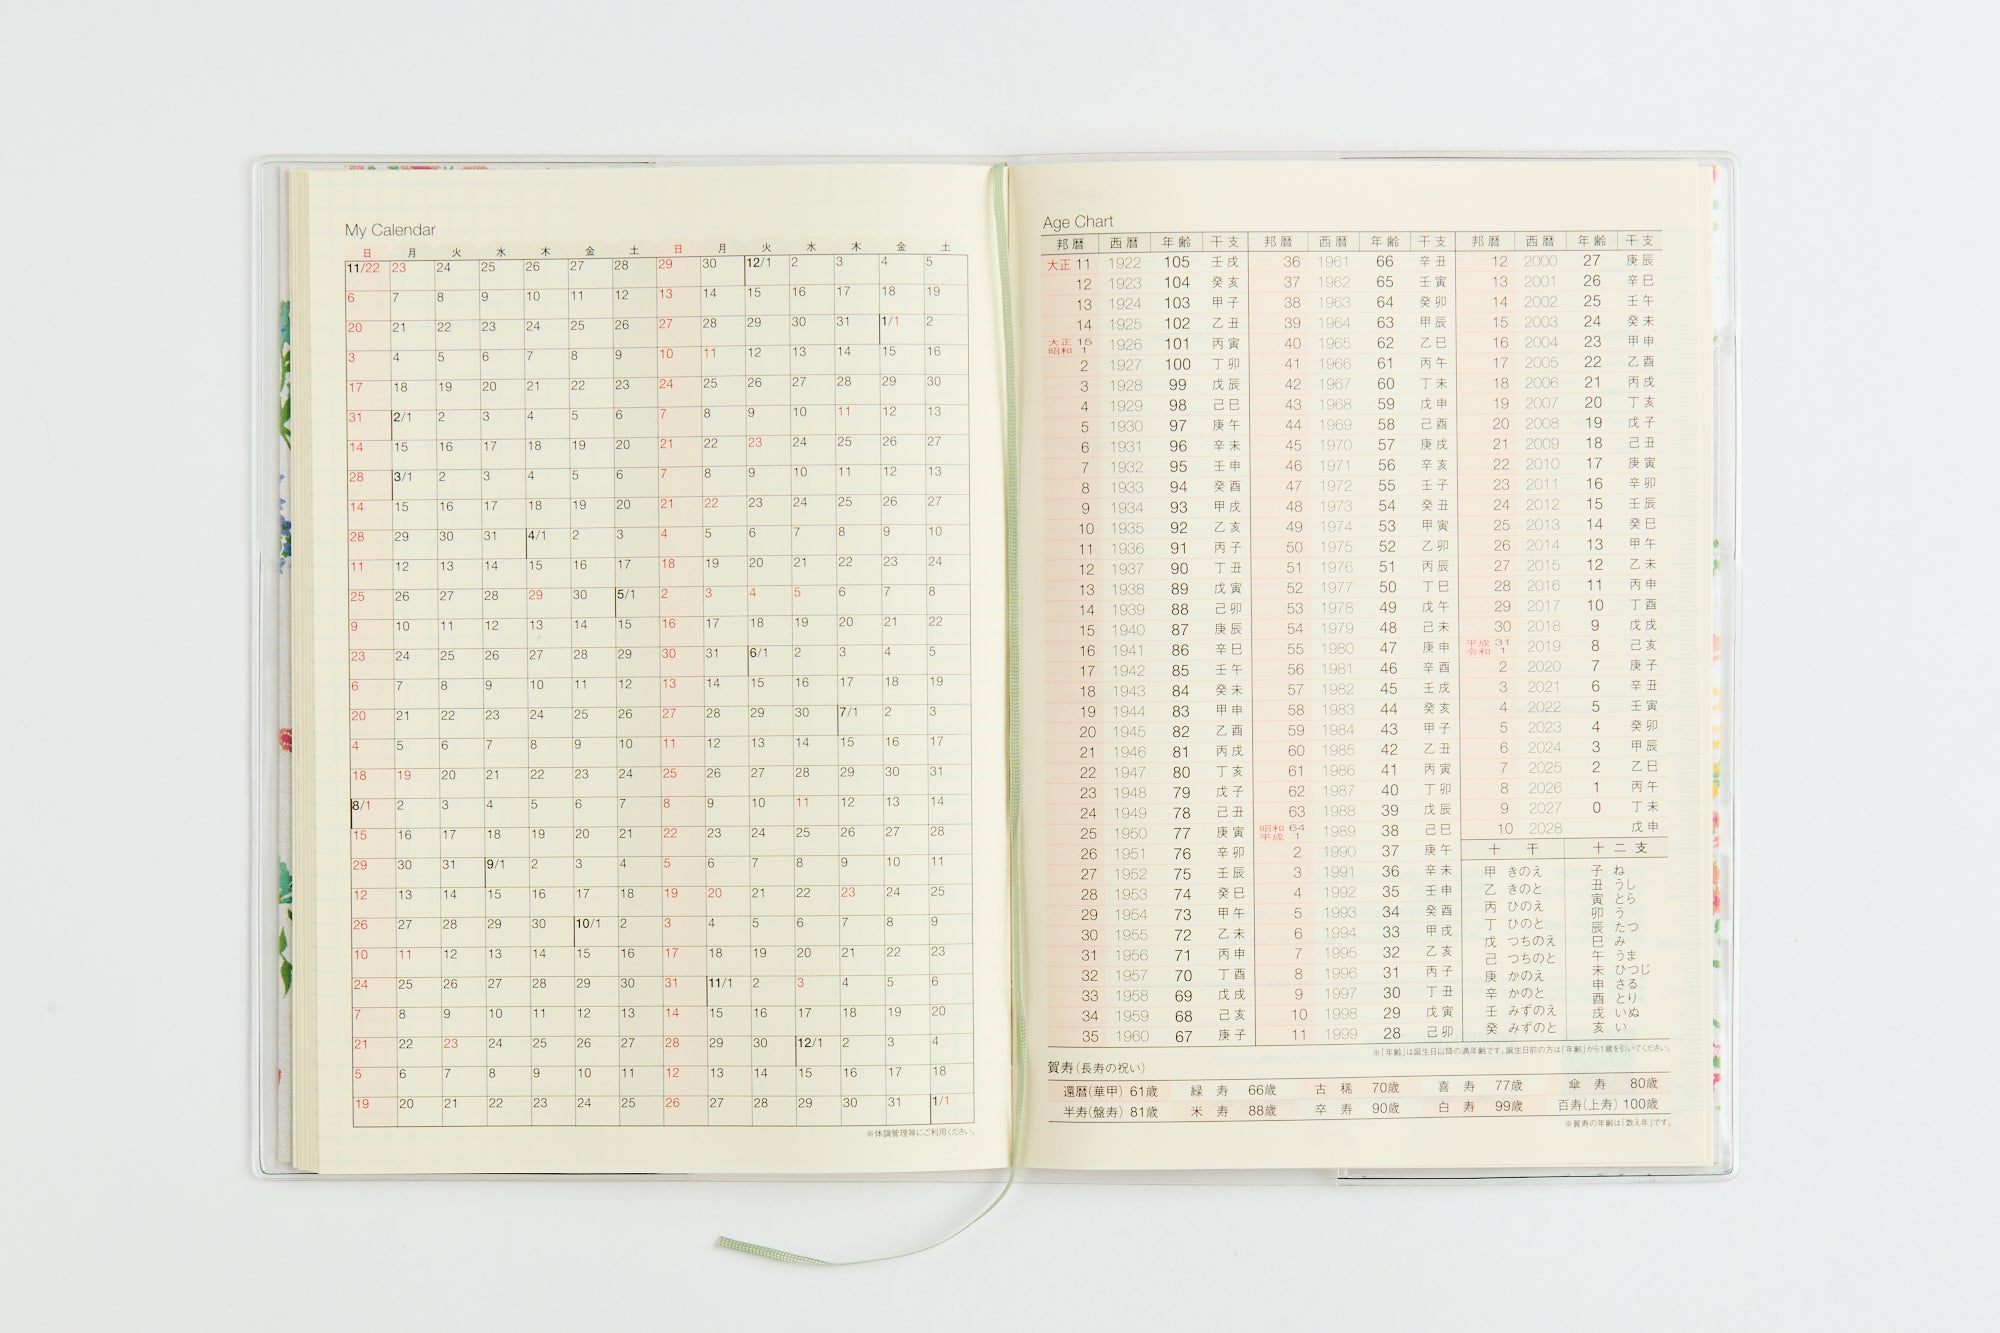 My Calendar
日 月 火 水 木 金 土 日 月 火 水 木 金 土
11/22 23 24 25 26 27 28 29 30 12/1 2 3 4 5
6 7 8 9 10 11 12 13 14 15 16 17 18 19
20 21 22 23 24 25 26 27 28 29 30 31 1/1 2
3 4 5 6 7 8 9 10 11 12 13 14 15 16
17 18 19 20 21 22 23 24 25 26 27 28 29 30
31 2/1 2 3 4 5 6 7 8 9 10 11 12 13
14 15 16 17 18 19 20 21 22 23 24 25 26 27
28 3/1 2 3 4 5 6 7 8 9 10 11 12 13
14 15 16 17 18 19 20 21 22 23 24 25 26 27
28 29 30 31 4/1 2 3 4 5 6 7 8 9 10
11 12 13 14 15 16 17 18 19 20 21 22 23 24
25 26 27 28 29 30 5/1 2 3 4 5 6 7 8
9 10 11 12 13 14 15 16 17 18 19 20 21 22
23 24 25 26 27 28 29 30 31 6/1 2 3 4 5
6 7 8 9 10 11 12 13 14 15 16 17 18 19
20 21 22 23 24 25 26 27 28 29 30 7/1 2 3
4 5 6 7 8 9 10 11 12 13 14 15 16 17
18 19 20 21 22 23 24 25 26 27 28 29 30 31
8/1 2 3 4 5 6 7 8 9 10 11 12 13 14
15 16 17 18 19 20 21 22 23 24 25 26 27 28
29 30 31 9/1 2 3 4 5 6 7 8 9 10 11
12 13 14 15 16 17 18 19 20 21 22 23 24 25
26 27 28 29 30 10/1 2 3 4 5 6 7 8 9
10 11 12 13 14 15 16 17 18 19 20 21 22 23
24 25 26 27 28 29 30 31 11/1 2 3 4 5 6
7 8 9 10 11 12 13 14 15 16 17 18 19 20
21 22 23 24 25 26 27 28 29 30 12/1 2 3 4
5 6 7 8 9 10 11 12 13 14 15 16 17 18
19 20 21 22 23 24 25 26 27 28 29 30 31 1/1
※体調管理等にご利用ください。
Age Chart
邦暦 西暦 年齢 干支 邦暦 西暦 年齢 干支 邦暦 西暦 年齢 干支
大正 11 1922 105 壬戌 36 1961 66 辛丑 12 2000 27 庚辰
12 1923 104 癸亥 37 1962 65 壬寅 13 2001 26 辛巳
13 1924 103 甲子 38 1963 64 癸卯 14 2002 25 壬午
14 1925 102 乙丑 39 1964 63 甲辰 15 2003 24 癸未
大正 15 昭和 1 1926 101 丙寅 40 1965 62 乙巳 16 2004 23 甲申
2 1927 100 丁卯 41 1966 61 丙午 17 2005 22 乙酉
3 1928 99 戊辰 42 1967 60 丁未 18 2006 21 丙戌
4 1929 98 己巳 43 1968 59 戊申 19 2007 20 丁亥
5 1930 97 庚午 44 1969 58 己酉 20 2008 19 戊子
6 1931 96 辛未 45 1970 57 庚戌 21 2009 18 己丑
7 1932 95 壬申 46 1971 56 辛亥 22 2010 17 庚寅
8 1933 94 癸酉 47 1972 55 壬子 23 2011 16 辛卯
9 1934 93 甲戌 48 1973 54 癸丑 24 2012 15 壬辰
10 1935 92 乙亥 49 1974 53 甲寅 25 2013 14 癸巳
11 1936 91 丙子 50 1975 52 乙卯 26 2014 13 甲午
12 1937 90 丁丑 51 1976 51 丙辰 27 2015 12 乙未
13 1938 89 戊寅 52 1977 50 丁巳 28 2016 11 丙申
14 1939 88 己卯 53 1978 49 戊午 29 2017 10 丁酉
15 1940 87 庚辰 54 1979 48 己未 30 2018 9 戊戌
16 1941 86 辛巳 55 1980 47 庚申 平成 31 令和 1 2019 8 己亥
17 1942 85 壬午 56 1981 46 辛酉 2 2020 7 庚子
18 1943 84 癸未 57 1982 45 壬戌 3 2021 6 辛丑
19 1944 83 甲申 58 1983 44 癸亥 4 2022 5 壬寅
20 1945 82 乙酉 59 1984 43 甲子 5 2023 4 癸卯
21 1946 81 丙戌 60 1985 42 乙丑 6 2024 3 甲辰
22 1947 80 丁亥 61 1986 41 丙寅 7 2025 2 乙巳
23 1948 79 戊子 62 1987 40 丁卯 8 2026 1 丙午
24 1949 78 己丑 63 1988 39 戊辰 9 2027 0 丁未
25 1950 77 庚寅 昭和 64 平成 1 1989 38 己巳 10 2028 戊申
26 1951 76 辛卯 2 1990 37 庚午
27 1952 75 壬辰 3 1991 36 辛未
28 1953 74 癸巳 4 1992 35 壬申
29 1954 73 甲午 5 1993 34 癸酉
30 1955 72 乙未 6 1994 33 甲戌
31 1956 71 丙申 7 1995 32 乙亥
32 1957 70 丁酉 8 1996 31 丙子
33 1958 69 戊戌 9 1997 30 丁丑
34 1959 68 己亥 10 1998 29 戊寅
35 1960 67 庚子 11 1999 28 己卯
十干
甲 きのえ
乙 きのと
丙 ひのえ
丁 ひのと
戊 つちのえ
己 つちのと
庚 かのえ
辛 かのと
壬 みずのえ
癸 みずのと
十二支
子 ね
丑 うし
寅 とら
卯 う
辰 たつ
巳 み
午 うま
未 ひつじ
申 さる
酉 とり
戌 いぬ
亥 い
※「年齢」は誕生日以降の満年齢です。誕生日前の方は「年齢」から1歳を引いてください。
賀寿(長寿の祝い)
還暦(華甲) 61歳 緑寿 66歳 古稀 70歳 喜寿 77歳 傘寿 80歳
半寿(盤寿) 81歳 米寿 88歳 卒寿 90歳 白寿 99歳 百寿(上寿) 100歳
※賀寿の年齢は「数え年」です。